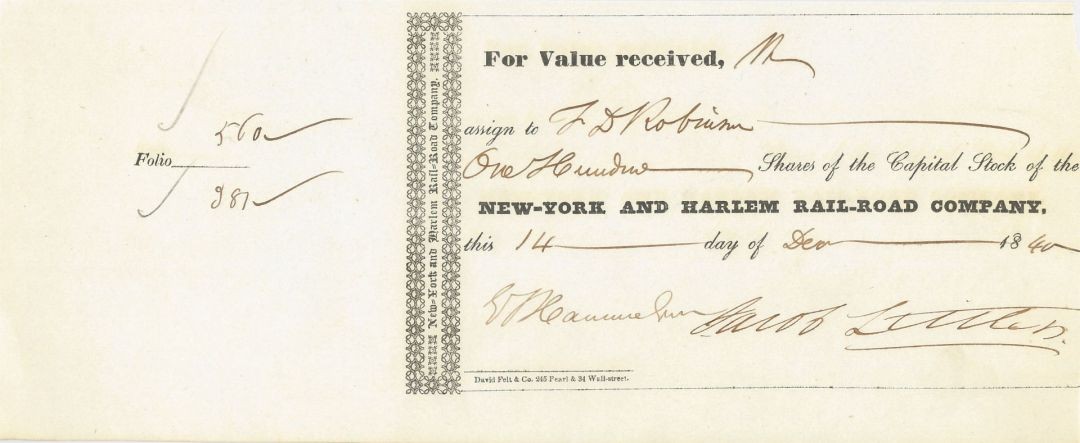 560
Folio
981
New-York and Harlem Rail-Road Company.
For Value received,
assign to F D Robinson
One Hundred Shares of the Capital Stock of the
NEW-YORK AND HARLEM RAIL-ROAD COMPANY,
this 14 day of Dec 1840
Jacob Little
David Felt & Co. 245 Pearl & 34 Wall-street.